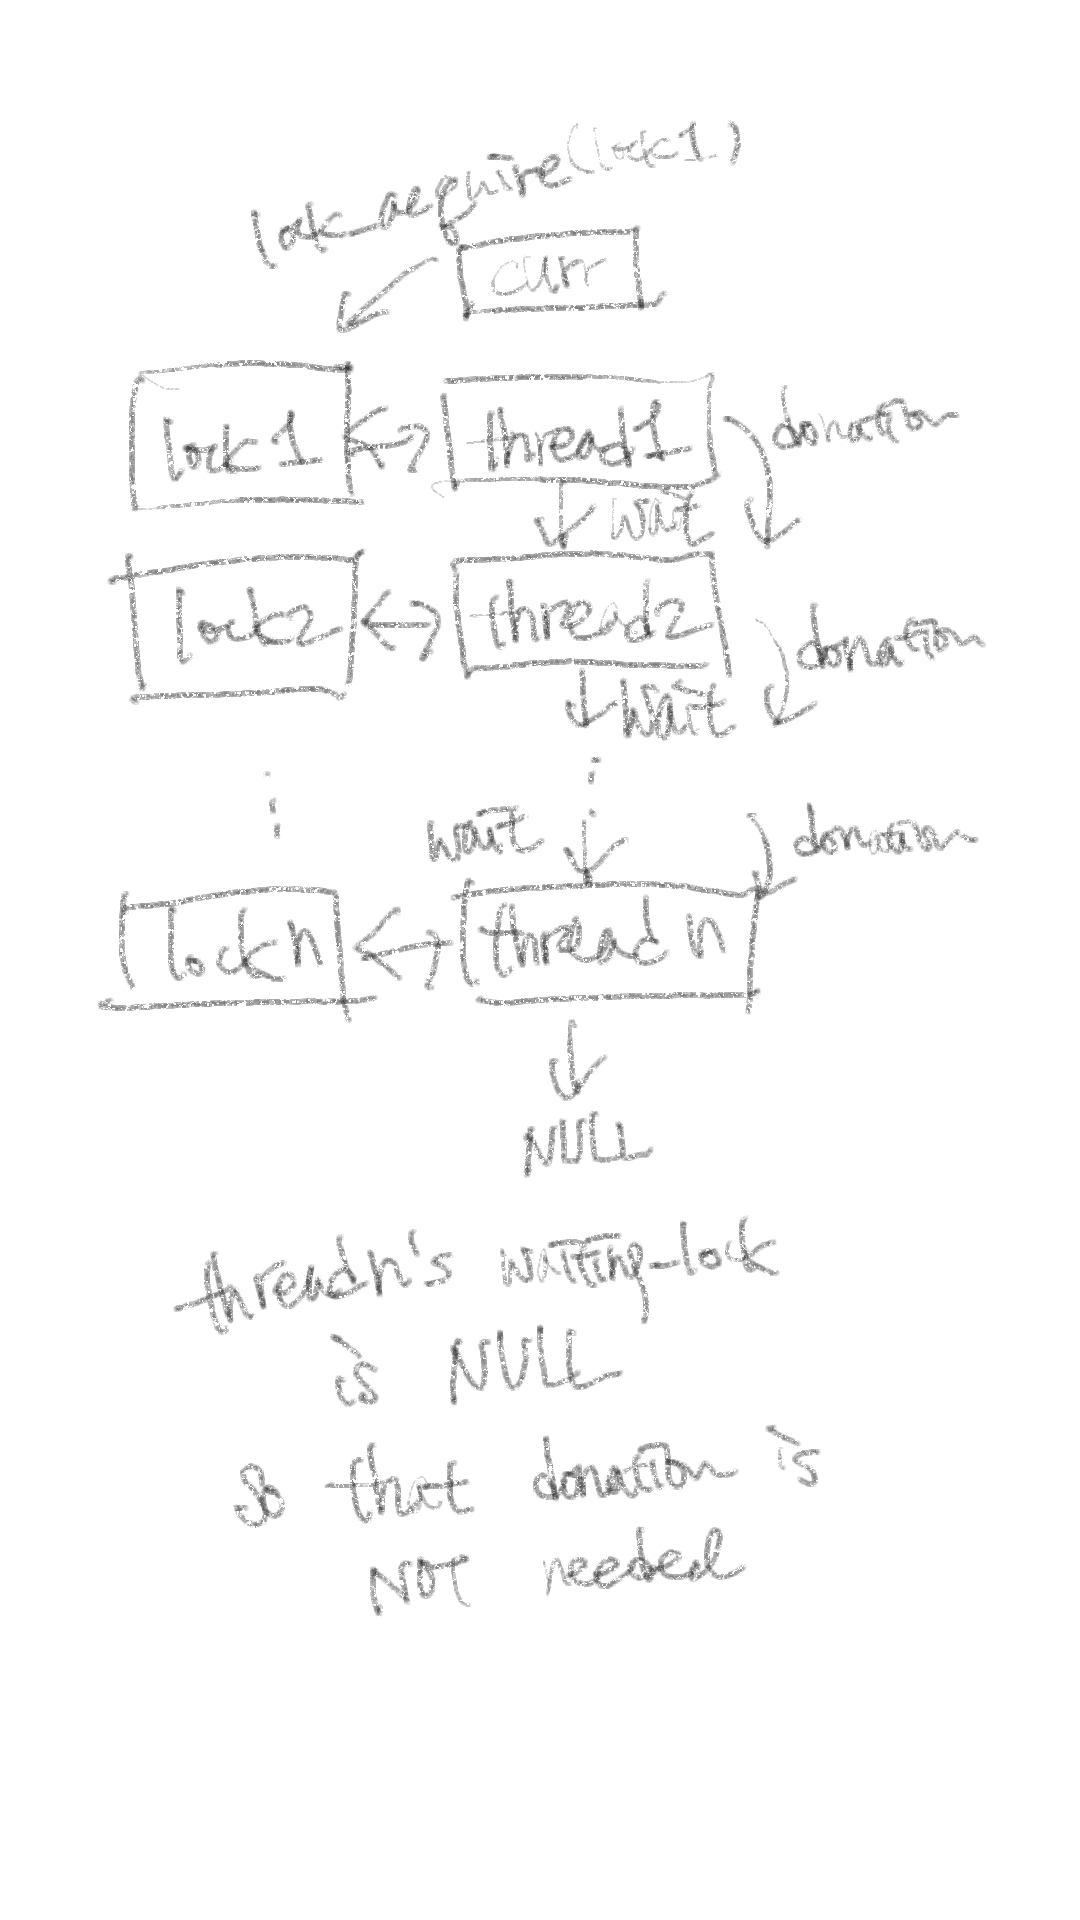 lock_acquire(lock1)
curr
lock1
thread1
donation
wait
lock2
thread2
donation
wait
wait
donation
lockn
threadn
NULL
threadn's waiting_lock
is NULL
so that donation is
NOT needed